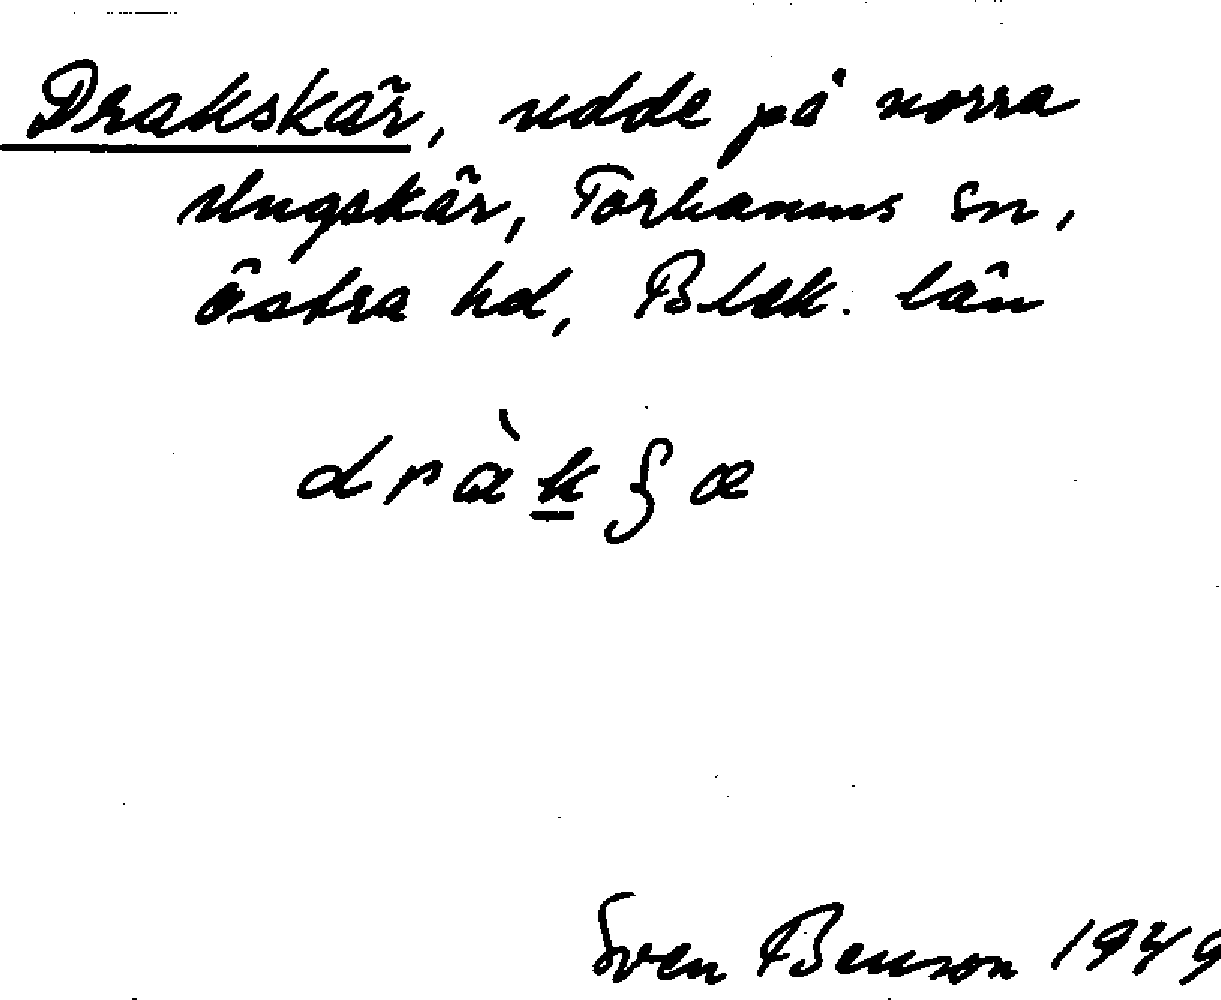 Drakskär, udde på norra
Ungskär, Torhamns sn,
östra hd, Blek. län
Sven Benson 1949